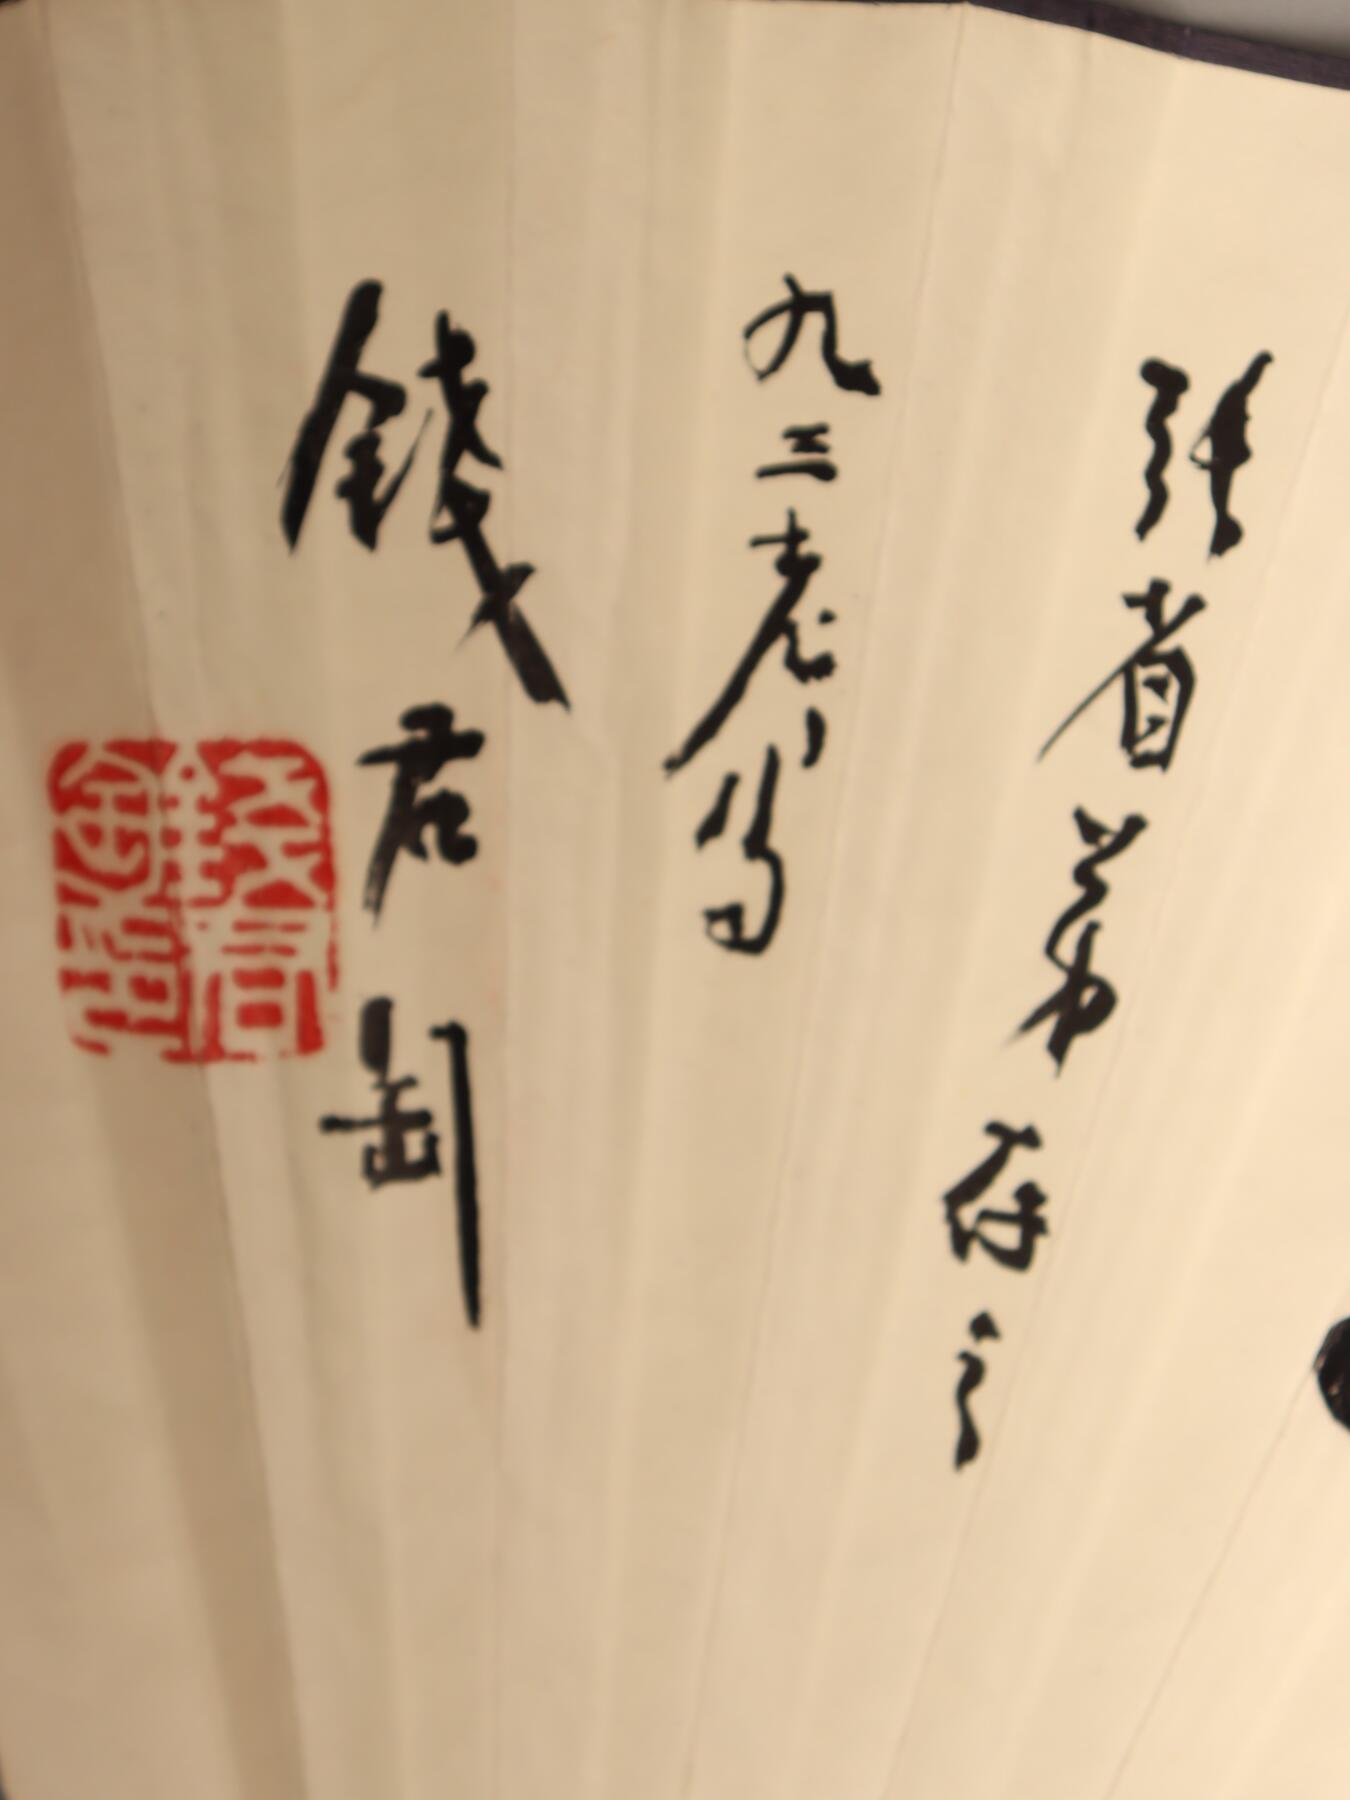 张省弟存之
九三老人写
錢君匋
錢君匋印